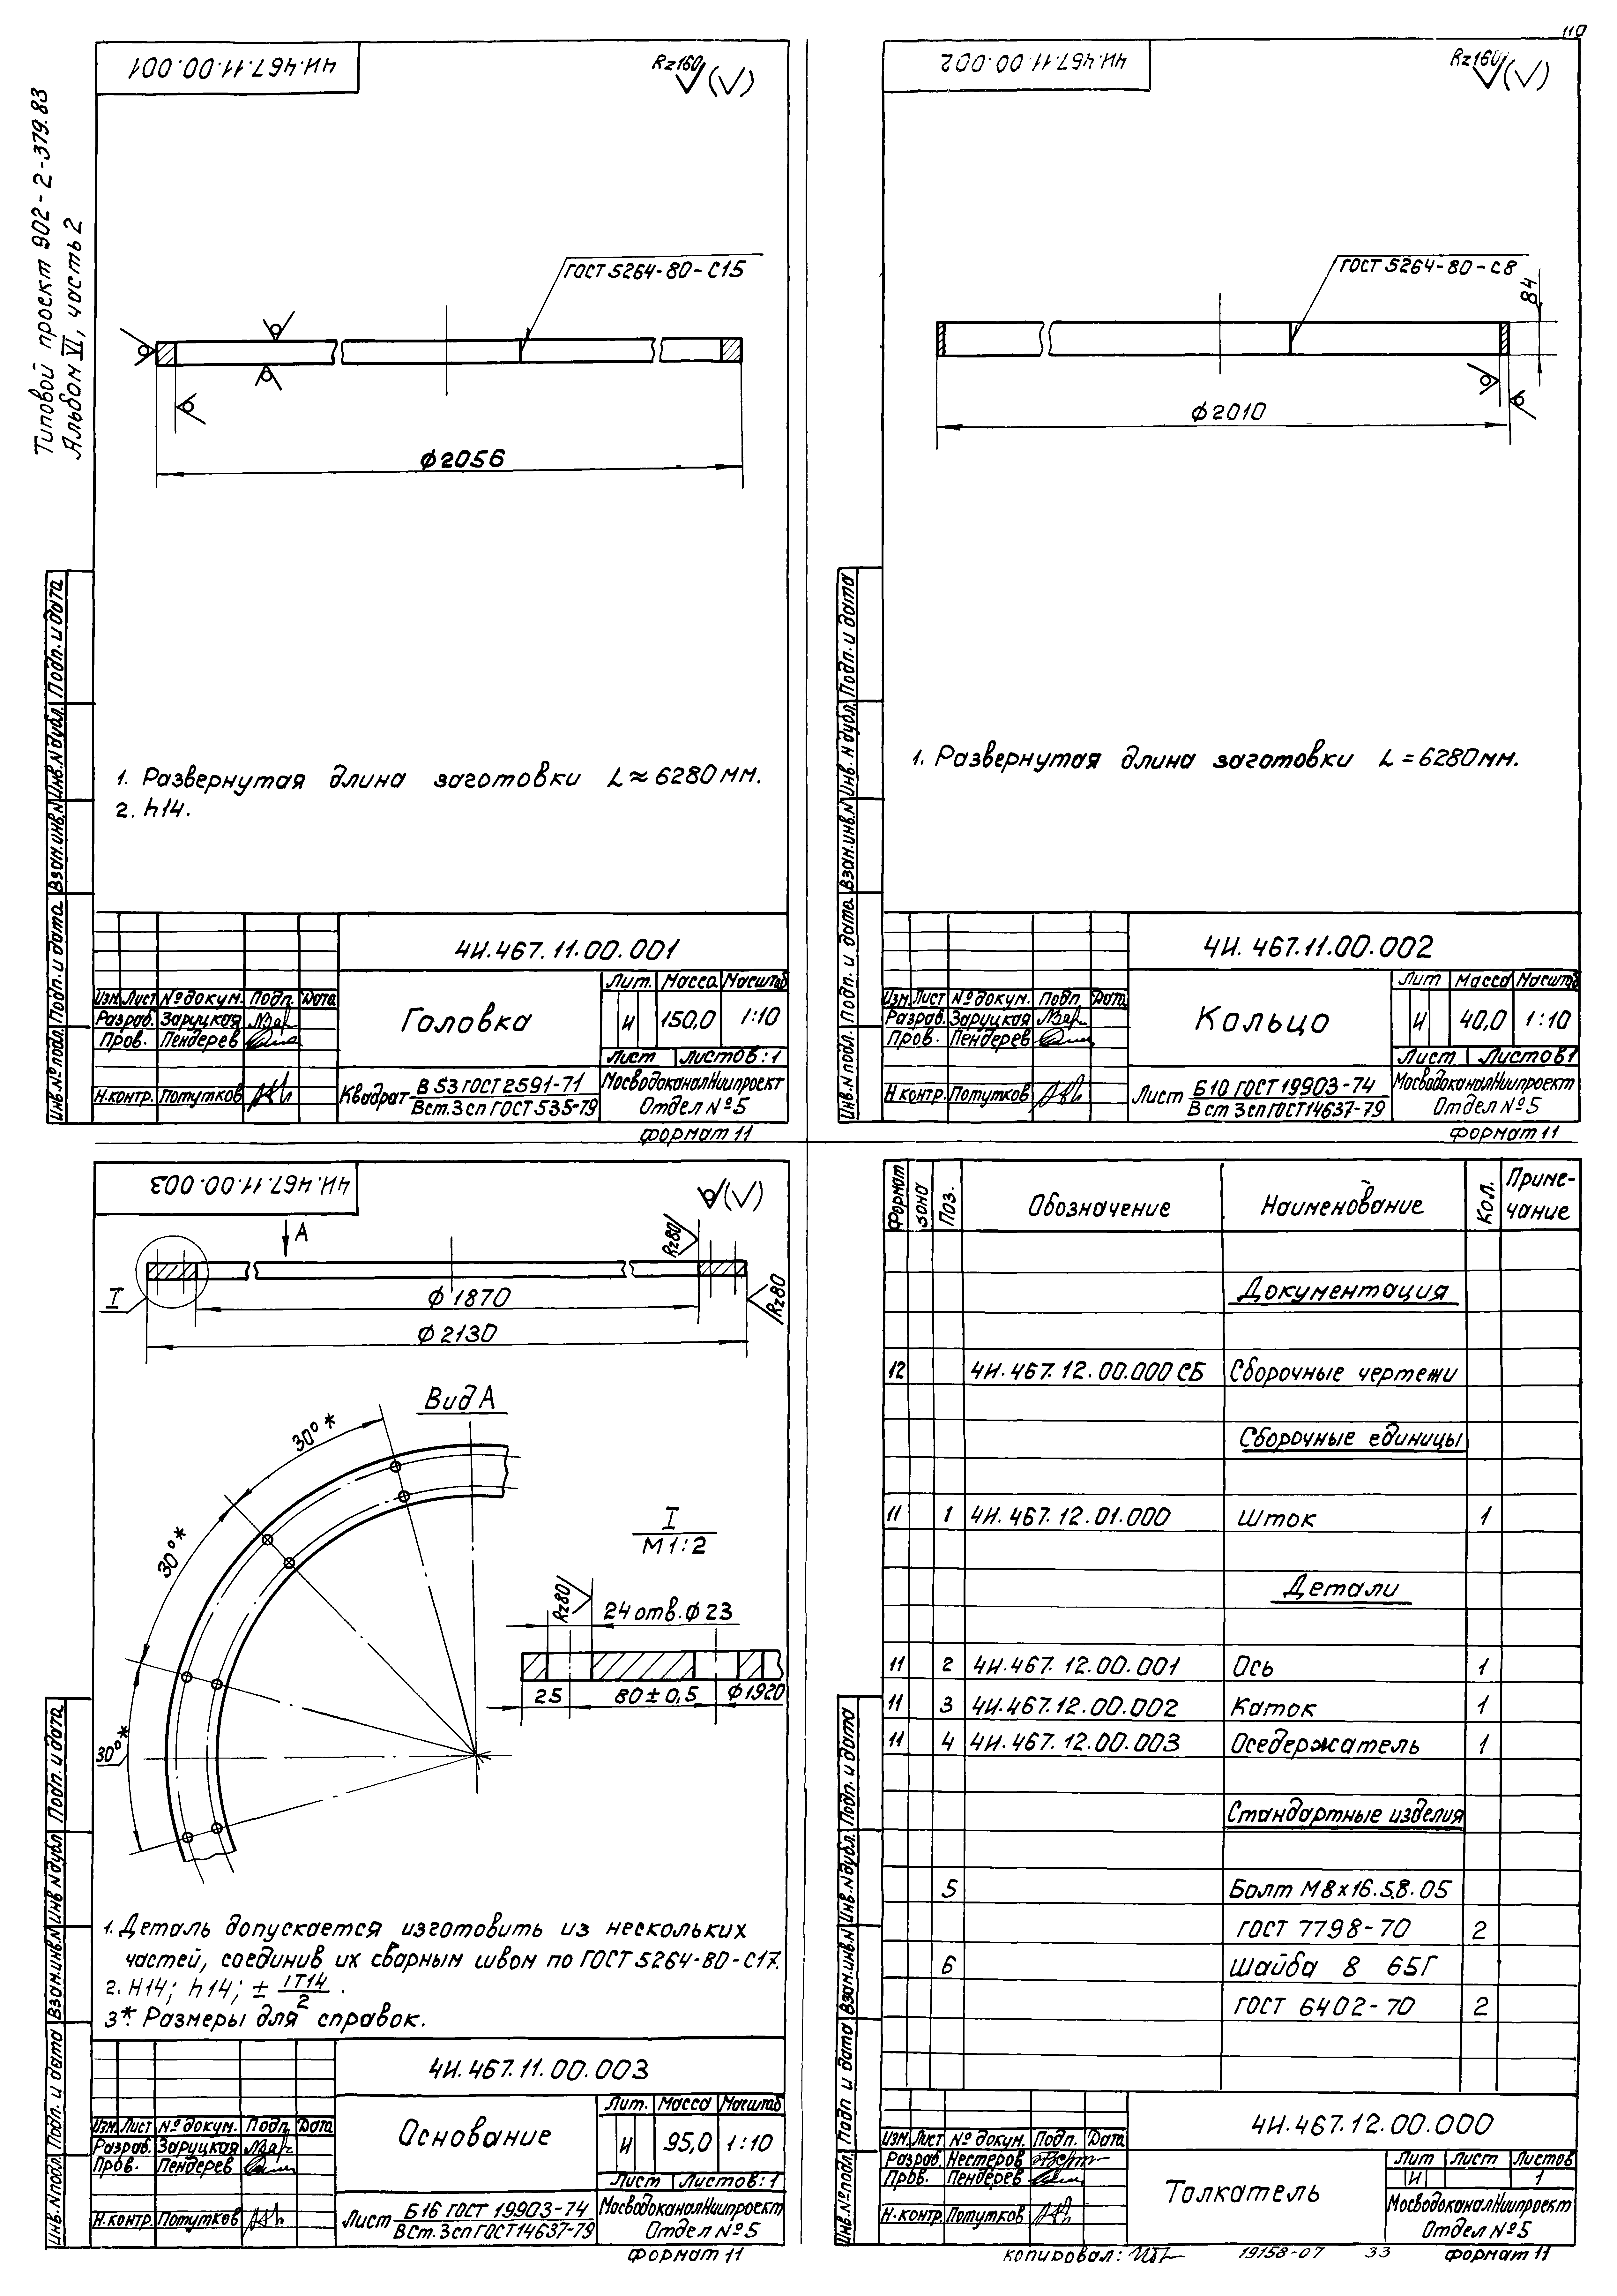 110
Типовой проект 902-2-379.83
Альбом VI, часть 2
4И.467.11.00.001
Rz160 (√)
ГОСТ 5264-80-С15
ф2056
1. Развернутая длина заготовки L≈6280мм.
2. h14.
Инв.№подл. Подп. и дата Взам.инв.N Инв.N дубл. Подп. и дата
4И.467.11.00.001
Изм. Лист №докум. Подп. Дата
Разраб. Заруцкая
Пров. Пендерев
Н.контр. Потутков
Головка
Лит. Масса Масштаб
И 150,0 1:10
Лист Листов:1
Квадрат В 53 ГОСТ 2591-71
Вст.3сп ГОСТ 535-79
МосводоканалНиипроект
Отдел №5
Формат 11
4И.467.11.00.002
Rz160 (√)
ГОСТ 5264-80-С8
84
ф2010
1. Развернутая длина заготовки L=6280мм.
Инв.N подл. Подп. и дата Взам.инв.N Инв. N дубл. Подп. и дата
4И.467.11.00.002
Изм. Лист №докум. Подп Дата
Разраб. Заруцкая
Пров. Пендерев
Н.контр. Потутков
Кольцо
Лит Масса Масштаб
И 40,0 1:10
Лист Листов1
Лист Б10 ГОСТ 19903-74
Вст 3сп ГОСТ 14637-79
МосводоканалНиипроект
Отдел №5
Формат 11
4И.467.11.00.003
(√)
А
Rz80
Rz80
I
ф1870
ф2130
Вид А
30°*
30°*
30°*
I
М1:2
Rz80
24 отв.ф23
25 80±0,5 ф1920
1. Деталь допускается изготовить из нескольких
частей, соединив их сварным швом по ГОСТ 5264-80-С17.
2. Н14; h14; ± IT14/2.
3*. Размеры для справок.
Инв.N подл. Подп. и дата Взам.инв.N Инв N дубл Подп. и дата
4И.467.11.00.003
Изм. Лист №докум. Подп. Дата
Разраб. Заруцкая
Пров. Пендерев
Н.контр. Потутков
Основание
Лит. Масса Масштаб
И 95,0 1:10
Лист Листов:1
Лист Б16 ГОСТ 19903-74
ВСт.3сп ГОСТ 14637-79
МосводоканалНиипроект
Отдел №5
Формат 11
Формат Зона Поз. Обозначение Наименование Кол. Приме-
чание
Документация
12 4И.467.12.00.000 СБ Сборочные чертежи
Сборочные единицы
11 1 4И.467.12.01.000 Шток 1
Детали
11 2 4И.467.12.00.001 Ось 1
11 3 4И.467.12.00.002 Каток 1
11 4 4И.467.12.00.003 Оседержатель 1
Стандартные изделия
5 Болт М8х16.58.05
ГОСТ 7798-70 2
6 Шайба 8 65Г
ГОСТ 6402-70 2
Инв.№подл. Подп и дата Взам.инв.N Инв.N дубл. Подп. и дата
4И.467.12.00.000
Изм. Лист №докум. Подп. Дата
Разраб. Нестеров
Пров. Пендерев
Н.контр. Потутков
Толкатель
Лит Лист Листов
И 1
МосводоканалНиипроект
Отдел №5
копировал: 19158-07 33 Формат 11